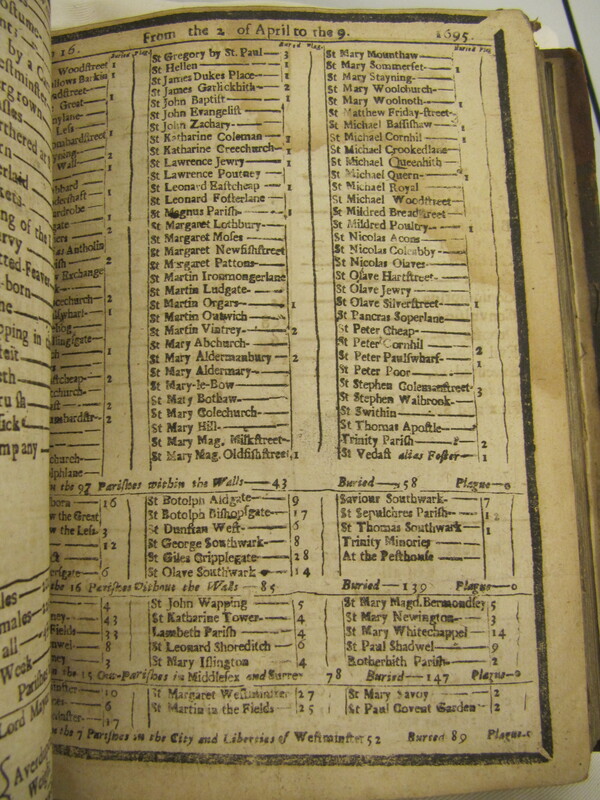 From the 2 of April to the 9. 1695.
16.
Buried Plag.
Buried Plag.
Buried Plag
Woodstreet 1
St Gregory by St. Paul 3
St Mary Mounthaw
St Hellen 1
St Mary Somerset 1
St James Dukes Place 1
St Mary Stayning
Great 1
St James Garlickhith 2
St Mary Woolchurch
St John Baptist 1
St Mary Woolnoth 1
St John Evangelist
St Matthew Friday-street
St John Zachary
St Michael Bassishaw 1
St Katharine Coleman 1
St Michael Cornhil 1
St Katharine Creechurch 1
St Michael Crookedlane
St Lawrence Jewry 1
St Michael Queenhith
St Lawrence Poutney
St Michael Quern 1
St Leonard Eastcheap 1
St Michael Royal
St Leonard Fosterlane
St Michael Woodstreet
St Magnus Parish 1
St Mildred Breadstreet
St Margaret Lothbury
St Mildred Poultry 1
St Margaret Moses
St Nicolas Acons
St Margaret Newfishstreet
St Nicolas Coleabby
St Margaret Pattons
St Nicolas Olaves
St Martin Ironmongerlane
St Olave Hartstreet
St Martin Ludgate
St Olave Jewry
St Martin Orgars 1
St Olave Silverstreet 1
St Martin Outwich
St Pancras Soperlane
St Martin Vintrey 2
St Peter Cheap
St Mary Abchurch
St Peter Cornhil 2
St Mary Aldermanbury 2
St Peter Paulswharf 1
St Mary Aldermary
St Peter Poor 1
St Mary-le-Bow
St Stephen Colemanstreet 3
St Mary Bothaw
St Stephen Walbrook
St Mary Colechurch
St Swithin
St Mary Hill
St Thomas Apostle
St Mary Mag. Milkstreet
Trinity Parish 2
St Mary Mag. Oldfishstreet 1
St Vedast alias Foster 1
the 97 Parishes within the Walls 43 Buried 58 Plague 0
16
St Botolph Aldgate 9
Saviour Southwark 7
the Great
St Botolph Bishopsgate 17
St Sepulchres Parish 12
the Less 3
St Dunstan West 6
St Thomas Southwark 1
12
St George Southwark 8
Trinity Minories
St Giles Cripplegate 28
At the Pesthouse
6
St Olave Southwark 14
the 16 Parishes without the Walls 85 Buried 139 Plague 0
4
St John Wapping 5
St Mary Magd. Bermondsey 5
43
St Katharine Tower 4
St Mary Newington 3
Fields 33
Lambeth Parish 4
St Mary Whitechappel 14
8
St Leonard Shoreditch 6
St Paul Shadwel 9
3
St Mary Islington 4
Rotherhith Parish 2
the 15 Out-Parishes in Middlesex and Surre 78 Buried 147 Plague 0
10
St Margaret Westminster 27
St Mary Savoy 2
6
St Martin in the Fields 25
St Paul Covent Garden 2
17
the 7 Parishes in the City and Liberties of Westminster 52 Buried 89 Plague 0